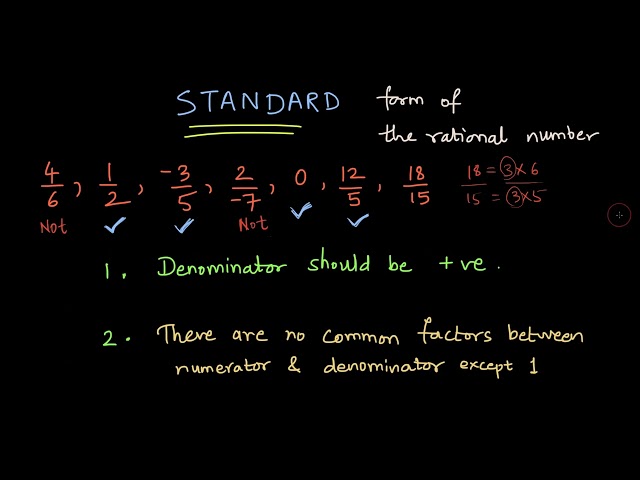 STANDARD form of
the rational number
4/6, 1/2, -3/5, 2/-7, 0, 12/5, 18/15 18 = 3×6
15 = 3×5
Not ✓ ✓ Not ✓ ✓
1. Denominator should be +ve.
2. There are no common factors between
numerator & denominator except 1